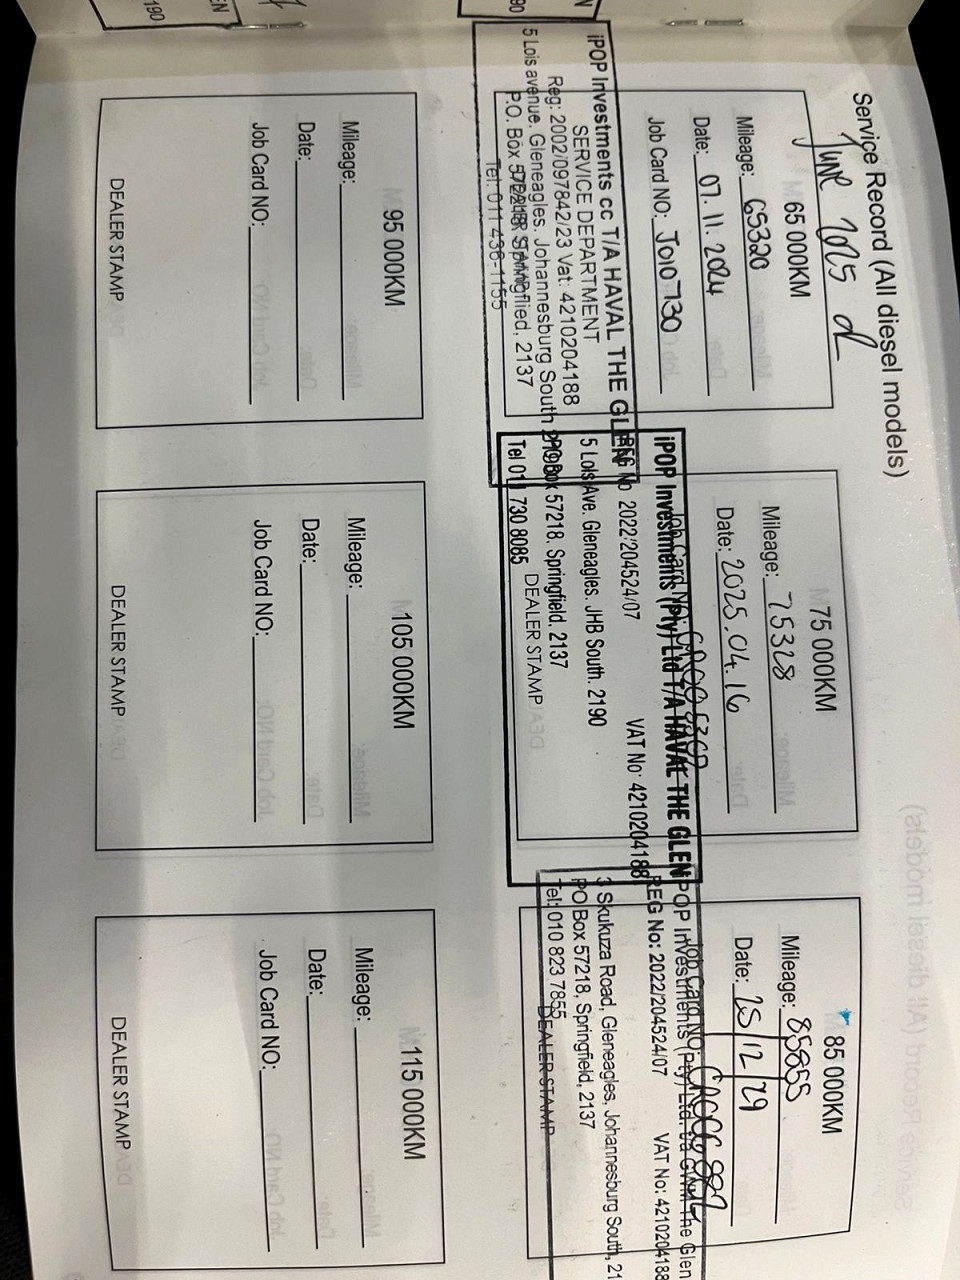 Service Record (All diesel models)
June 2025
65 000KM
Mileage: 65320
Date: 07.11.2024
Job Card NO: J010730
iPOP Investments cc T/A HAVAL THE GLEN
SERVICE DEPARTMENT
Reg: 2002/097842/23 Vat: 4210204188
5 Lois avenue. Gleneagles. Johannesburg South 2190
P.O. Box 57218 Springfield, 2137
Tel: 011 436-1155
75 000KM
Mileage: 75328
Date: 2025.04.16
Job Card NO:
iPOP Investments (Pty) Ltd T/A HAVAL THE GLEN
REG No 2022/204524/07 VAT No: 4210204188
5 Lois Ave. Gleneagles. JHB South. 2190
PO Box 57218. Springfield. 2137
Tel 011 730 8085
DEALER STAMP
85 000KM
Mileage: 85855
Date: 25/12/29
Job Card NO:
iPOP Investments (Pty) Ltd. t/a GWM The Glen
REG No: 2022/204524/07 VAT No: 4210204188
3 Skukuza Road, Gleneagles, Johannesburg South, 21
PO Box 57218, Springfield, 2137
Tel: 010 823 7855
DEALER STAMP
95 000KM
Mileage:
Date:
Job Card NO:
DEALER STAMP
105 000KM
Mileage:
Date:
Job Card NO:
DEALER STAMP
115 000KM
Mileage:
Date:
Job Card NO:
DEALER STAMP